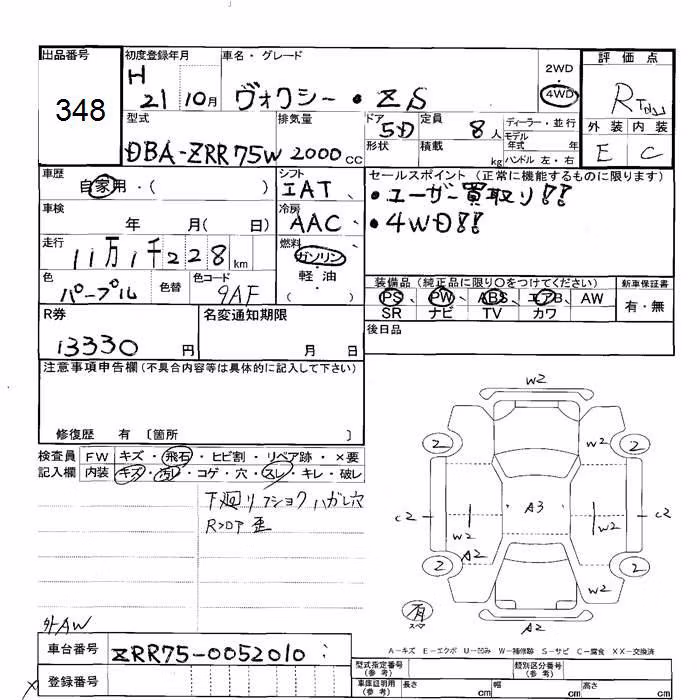 出品番号
348
初度登録年月
H
21 10月
車名・グレード
ヴォクシー・ZS
2WD
・
4WD
評価点
R
外装 内装
E C
型式
DBA-ZRR75W
排気量
2000cc
ドア
5D
形状
定員
8人
積載
kg
ディーラー・並行
モデル
年式 年
ハンドル 左・右
車歴
自家用・( )
シフト
IAT
セールスポイント (正常に機能するものに限ります)
・ユーザー買取り!!
・4WD!!
車検
年 月( 日)
冷房
AAC
走行
11万1千228km
燃料
ガソリン
・
軽・油
( )
色
パープル
色替
色コード
9AF
装備品 (純正品に限り○をつけてください)
PS、PW、ABS、エアB、AW
SR ナビ TV カワ
新車保証書
有・無
R券
13330円
名変通知期限
月 日
後日品
注意事項申告欄(不具合内容等は具体的に記入して下さい)
修復歴 有 〔箇所 〕
検査員
記入欄
FW キズ・飛石・ヒビ割・リペア跡・×要
内装 キズ・汚れ・コゲ・穴・スレ・キレ・破レ
下廻リフショクハガレ穴
Rフロア歪
外AW
W2
2 W2 2
C2 W2 A3 W2 C2
A2
2 W2 2
有
スペア
A2
A－キズ E－エクボ U－凹み W－補修跡 S－サビ C－腐食 XX－交換済
車台番号
ZRR75-0052010
登録番号
型式指定番号
(参考)
類別区分番号
(参考)
車庫証明用
(参考)
長さ cm
幅 cm
高さ cm